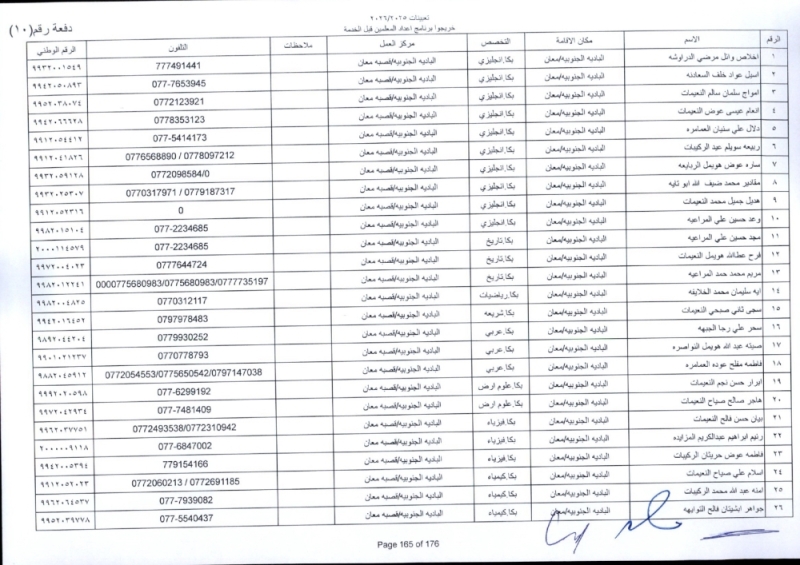 تعيينات ٢٠٢٦/٢٠٢٥
خريجوا برنامج اعداد المعلمين قبل الخدمة
دفعة رقم (١٠)
الرقم الاسم مكان الاقامة التخصص مركز العمل ملاحظات التلفون الرقم الوطني
١ اخلاص وائل مرضي الدراوشه الباديه الجنوبيه/معان بكا.انجليزي الباديه الجنوبيه/قصبه معان 777491441 ٩٩٣٢٠٠١٥٤٩
٢ اسيل عواد خلف السعادنه الباديه الجنوبيه/معان بكا.انجليزي الباديه الجنوبيه/قصبه معان 077-7653945 ٩٩٤٢٠٥٠٨٩٣
٣ امواج سلمان سالم النعيمات الباديه الجنوبيه/معان بكا.انجليزي الباديه الجنوبيه/قصبه معان 0772123921 ٩٩٥٢٠٣٨٠٧٤
٤ انعام عيسى عوض النعيمات الباديه الجنوبيه/معان بكا.انجليزي الباديه الجنوبيه/قصبه معان 0778353123 ٩٩٤٢٠٦٦٦٢٨
٥ دلال علي سنيان العمامره الباديه الجنوبيه/معان بكا.انجليزي الباديه الجنوبيه/قصبه معان 077-5414173 ٩٩١٢٠٥٤٤١٢
٦ ربيعه سويلم عيد الركيبات الباديه الجنوبيه/معان بكا.انجليزي الباديه الجنوبيه/قصبه معان 0776568890 / 0778097212 ٩٩١٢٠٤١٨٢٦
٧ ساره عوض هويمل الربايعه الباديه الجنوبيه/معان بكا.انجليزي الباديه الجنوبيه/قصبه معان 0772098584/0 ٩٩٣٢٠٥٩١٢٨
٨ مقادير محمد ضيف الله ابو تايه الباديه الجنوبيه/معان بكا.انجليزي الباديه الجنوبيه/قصبه معان 0770317971 / 0779187317 ٩٩٣٢٠٢٥٣٠٧
٩ هديل جميل محمد النعيمات الباديه الجنوبيه/معان بكا.انجليزي الباديه الجنوبيه/قصبه معان 0 ٩٩١٢٠٥٢٣١٦
١٠ وعد حسين علي المراعيه الباديه الجنوبيه/معان بكا.انجليزي الباديه الجنوبيه/قصبه معان 077-2234685 ٩٩٨٢٠١٥١٠٤
١١ مجد حسين علي المراعيه الباديه الجنوبيه/معان بكا.تاريخ الباديه الجنوبيه/قصبه معان 077-2234685 ٢٠٠٠١١٤٥٧٩
١٢ فرح عطاالله هويمل النعيمات الباديه الجنوبيه/معان بكا.تاريخ الباديه الجنوبيه/قصبه معان 0777644724 ٩٩٧٢٠٠٤٠٢٣
١٣ مريم محمد حمد المراعيه الباديه الجنوبيه/معان بكا.تاريخ الباديه الجنوبيه/قصبه معان 0000775680983/0775680983/0777735197 ٩٩٨٢٠١٢٢٤١
١٤ ايه سليمان محمد الخلايفه الباديه الجنوبيه/معان بكا.رياضيات الباديه الجنوبيه/قصبه معان 0770312117 ٩٩٨٢٠٠٤٨٢٥
١٥ سجى ثاني صبحي النعيمات الباديه الجنوبيه/معان بكا.شريعه الباديه الجنوبيه/قصبه معان 0797978483 ٩٩٤٢٠١٦٤٥٢
١٦ سحر علي رجا الجبهه الباديه الجنوبيه/معان بكا.عربي الباديه الجنوبيه/قصبه معان 0779930252 ٩٨٩٢٠٤٤٢٠٤
١٧ صيته عبد الله هويمل النواصره الباديه الجنوبيه/معان بكا.عربي الباديه الجنوبيه/قصبه معان 0770778793 ٩٩٠١٠٢١٢٣٧
١٨ فاطمه مفلح عوده العمامره الباديه الجنوبيه/معان بكا.عربي الباديه الجنوبيه/قصبه معان 0772054553/0775650542/0797147038 ٩٨٨٢٠٤٥٩١٢
١٩ ابرار حسن نجم النعيمات الباديه الجنوبيه/معان بكا.علوم ارض الباديه الجنوبيه/قصبه معان 077-6299192 ٩٩٩٢٠٢٠٥٩٨
٢٠ هاجر صالح صياح النعيمات الباديه الجنوبيه/معان بكا.علوم ارض الباديه الجنوبيه/قصبه معان 077-7481409 ٩٩٧٢٠٤٢٩٣٤
٢١ بيان حسن فالح النعيمات الباديه الجنوبيه/معان بكا.فيزياء الباديه الجنوبيه/قصبه معان 0772493538/0772310942 ٩٩٦٢٠٣٧٧٥١
٢٢ رنيم ابراهيم عبدالكريم المزايده الباديه الجنوبيه/معان بكا.فيزياء الباديه الجنوبيه/قصبه معان 077-6847002 ٢٠٠٠٠٠٩١١٨
٢٣ فاطمه عوض حريثان الركيبات الباديه الجنوبيه/معان بكا.فيزياء الباديه الجنوبيه/قصبه معان 779154166 ٩٩٤٢٠٠٥٣٩٤
٢٤ اسلام علي صياح النعيمات الباديه الجنوبيه/معان بكا.كيمياء الباديه الجنوبيه/قصبه معان 0772060213 / 0772691185 ٩٩١٢٠٥٢٠٢٣
٢٥ امنه عبد الله محمد الركيبات الباديه الجنوبيه/معان بكا.كيمياء الباديه الجنوبيه/قصبه معان 077-7939082 ٩٩٦٢٠٦٤٥٣٧
٢٦ جواهر ابشيتان فالح التوايهه الباديه الجنوبيه/معان بكا.كيمياء الباديه الجنوبيه/قصبه معان 077-5540437 ٩٩٥٢٠٣٩٧٧٨
Page 165 of 176